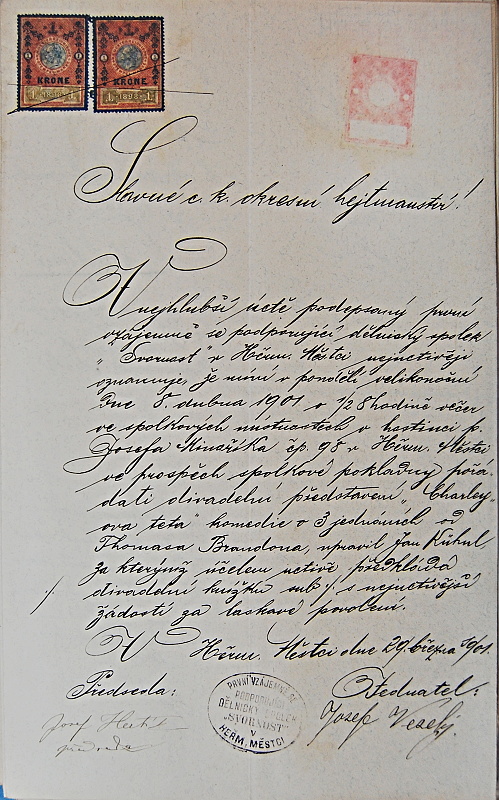 KRONE KRONE
1 1898 1 1 1898 1
Slavné c. k. okresní hejtmanství!
V nejhlubší úctě podepsaný první
vzájemně se podporující dělnický spolek
"Svornost" v Heřm. Městci nejuctivěji
oznamuje, že míní v pondělí velikonoční
Dne 8. dubna 1901 o 1/2 8 hodině večer
ve spolkových místnostech v hostinci p.
Josefa čp. 98 v Heřm. Městci
ve prospěch spolkové pokladny pořá-
dati divadelní představení "Charley-
ova teta" komedie o 3 jednáních od
Thomasa Brandona, upravil Jan Kühnl,
za kterýmž účelem uctivě předkládá
divadelní knížku sub ·/· s nejuctivější
·/· žádostí za laskavé povolení.
V Heřm. Městci dne 29. března 1901.
Předseda: Jednatel:
Josef Josef Veselý
předseda
PRVNÍ VZÁJEMNĚ SE
PODPORUJÍCÍ
DĚLNICKÝ SPOLEK
"SVORNOST"
V
HEŘM. MĚSTCI